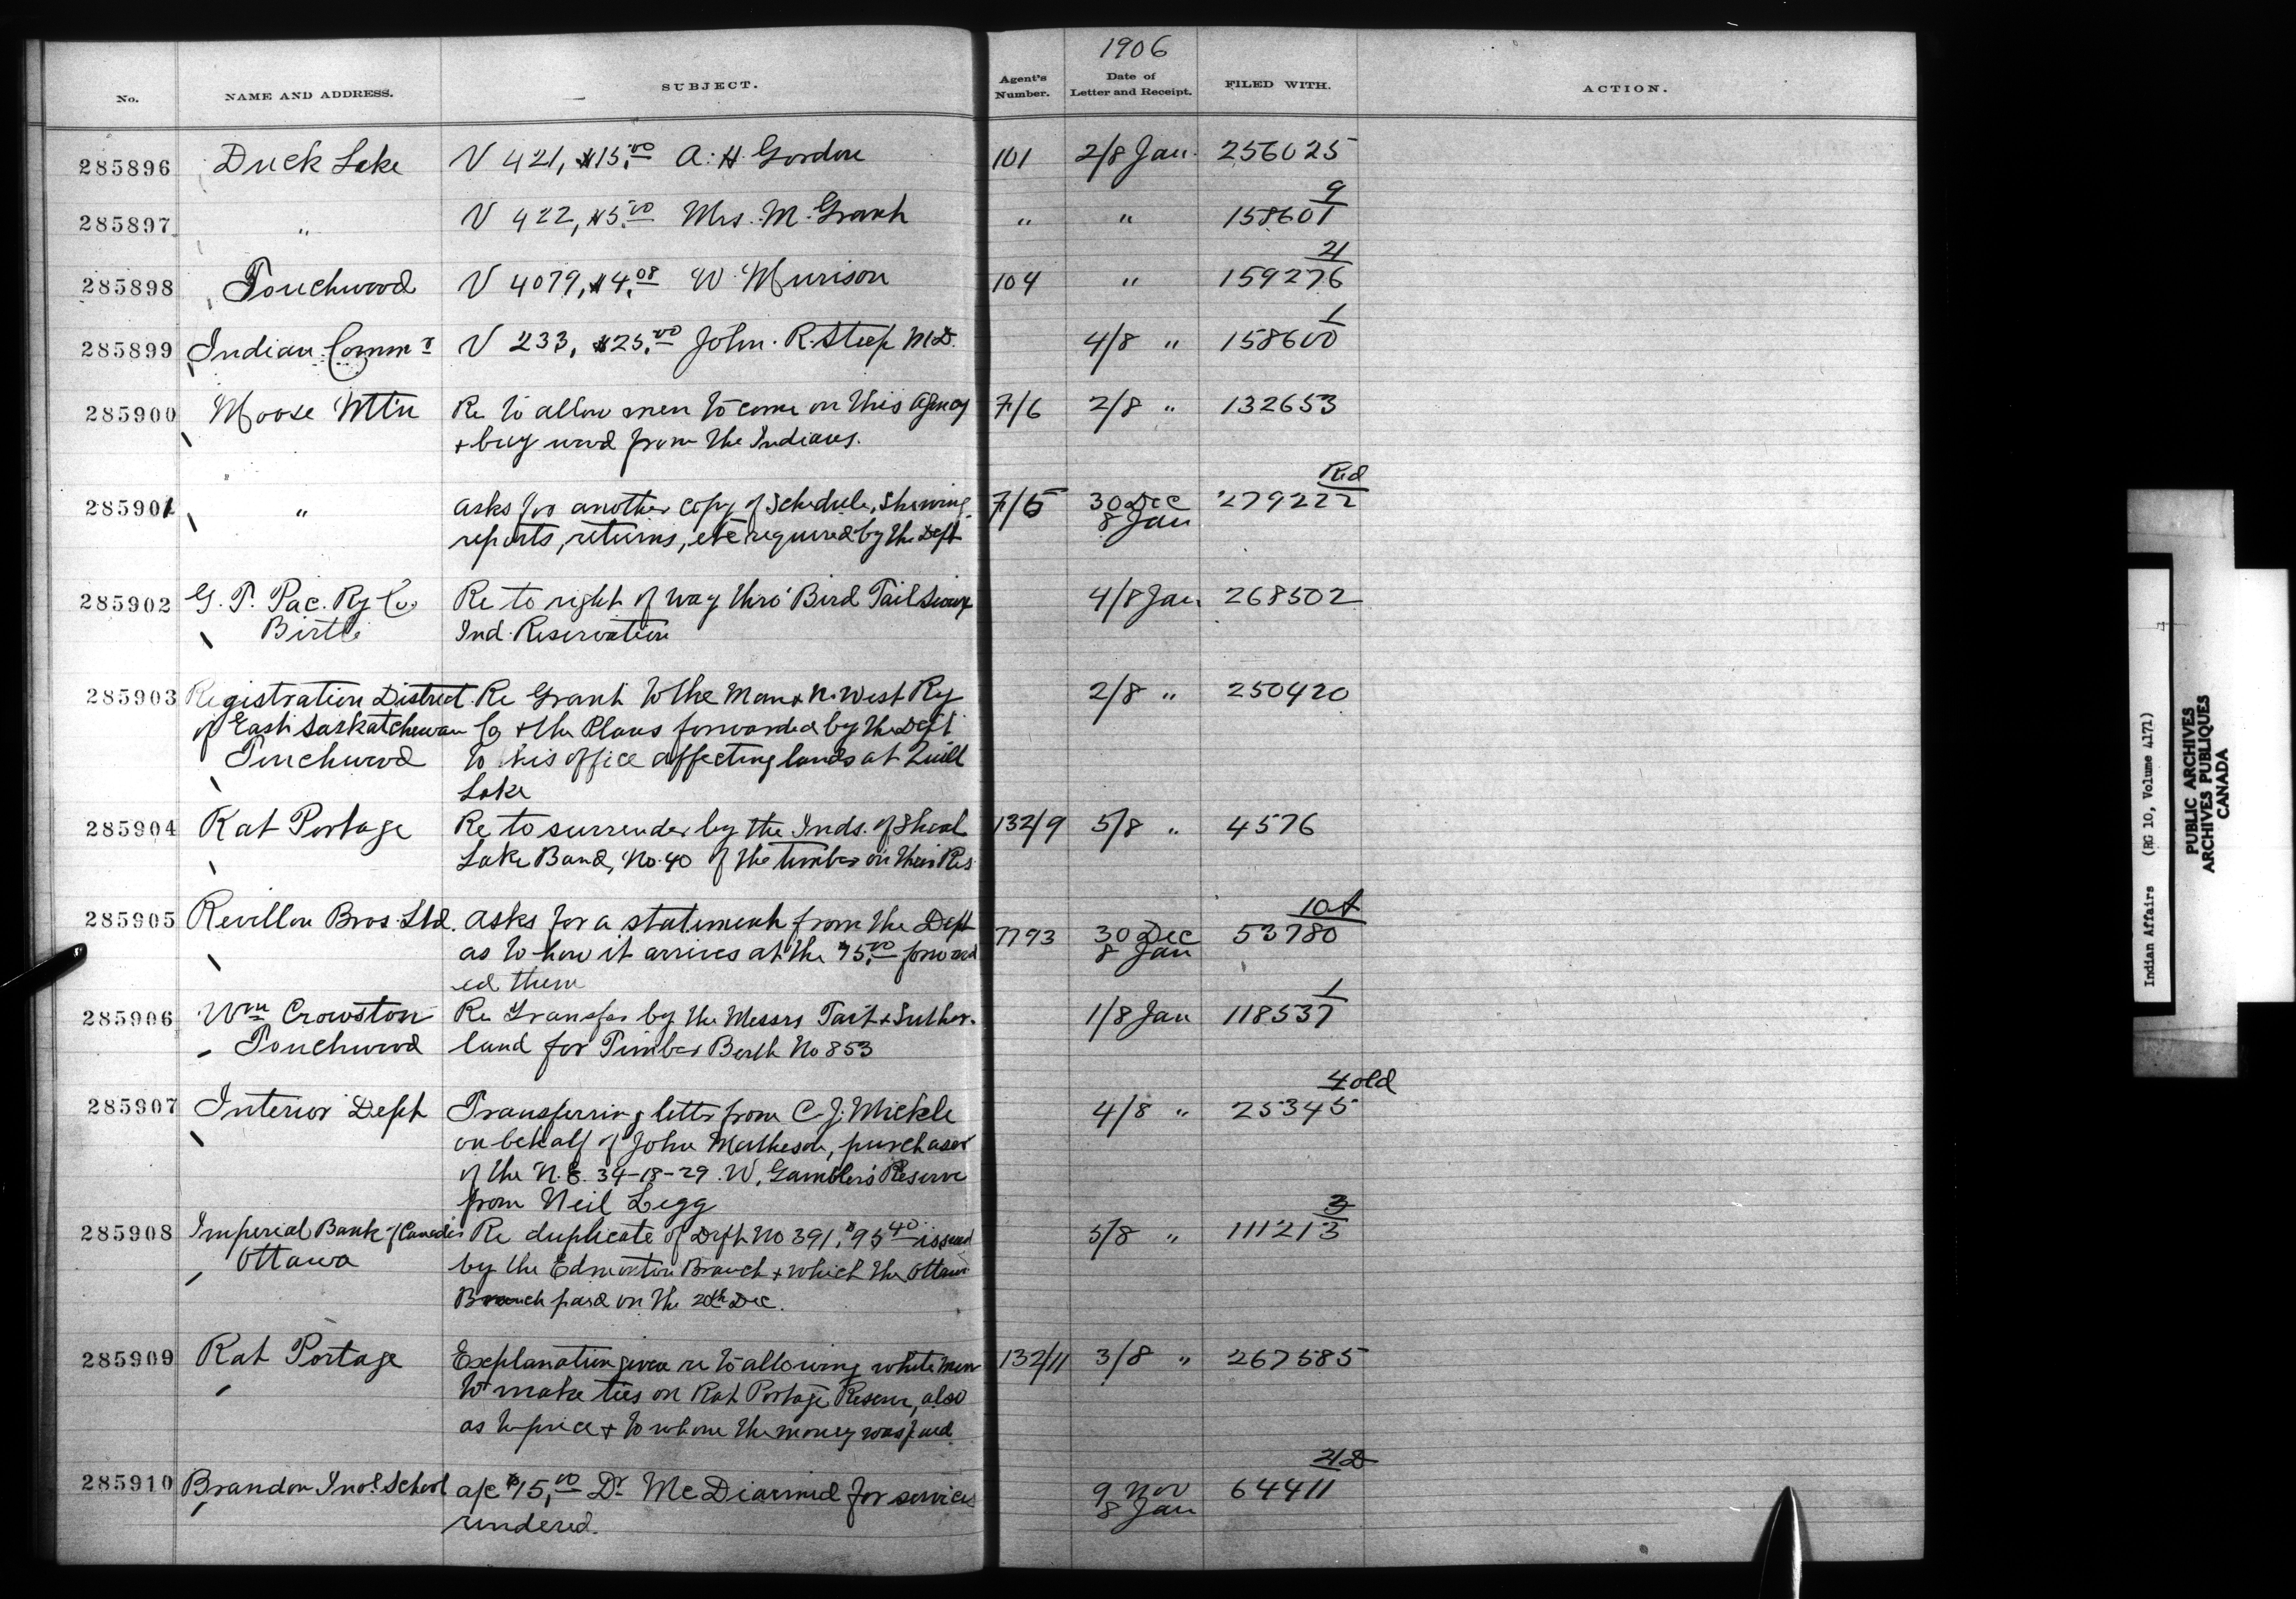 1906
No. NAME AND ADDRESS. SUBJECT. Agent's Number. Date of Letter and Receipt. FILED WITH. ACTION.
285896 Duck Lake V 421, $15.00 A. H. Gordon 101 2/8 Jan. 256025
9
285897 " V 422, $5.00 Mrs. M. Grant " " 158601
21
285898 Touchwood V 4079, $4.08 W. Murison 104 " 159276
1
285899 Indian Commr V 233, $25.00 John. R. Steep M.D. 4/8 " 158600
285900 Moose Mtn Re to allow men to come on this Agency 7/6 2/8 " 132653
+ buy wood from the Indians.
Rd
285901 " Asks for another copy of Schedule, showing 7/5 30 Dec 279222
reports, returns, etc required by the Dept 8 Jan
285902 G. T. Pac. Ry Co. Re to right of way thro' Bird Tail Sioux 4/8 Jan 268502
Birtle Ind. Reservation
285903 Registration District Re Grant to the Man & N. West Ry 2/8 " 250420
of East Saskatchewan Co + the Plans forwarded by the Dept
Touchwood to his office affecting lands at Quill
Lake
285904 Rat Portage Re to surrender by the Inds. of Shoal 132/9 5/8 " 4576
Lake Band, No. 40 of the timber on their Res
10A
285905 Revillon Bros. Ltd. Asks for a statement from the Dept 7793 30 Dec 53780
as to how it arrives at the $5.00 forward 8 Jan
ed them
1
285906 Wm Crowston Re Transfer by the Messrs Tait + Suther- 1/8 Jan 118537
Touchwood land for Timber Berth No 853
4 old
285907 Interior Dept Transferring letter from C. J. Mickle 4/8 " 25345
on behalf of John Matheson, purchaser
of the N.E. 34-18-29. W, Gambler's Reserve
from Neil Legg
3
285908 Imperial Bank of Canada Re duplicate of Dft No 391, $95.40 issued 5/8 " 111213
Ottawa by the Edmonton Branch + which the Ottawa
Branch paid on the 20th Dec.
285909 Rat Portage Explanation given re to allowing white men 132/11 3/8 " 267585
to make ties on Rat Portage Reserve, also
as to price + to whom the money was paid
21D
285910 Brandon Indl. School a/c $15.00 Dr McDiarmid for services 9 Nov 64411
rendered. 8 Jan
Indian Affairs (RG 10, Volume 4171)
PUBLIC ARCHIVES
ARCHIVES PUBLIQUES
CANADA